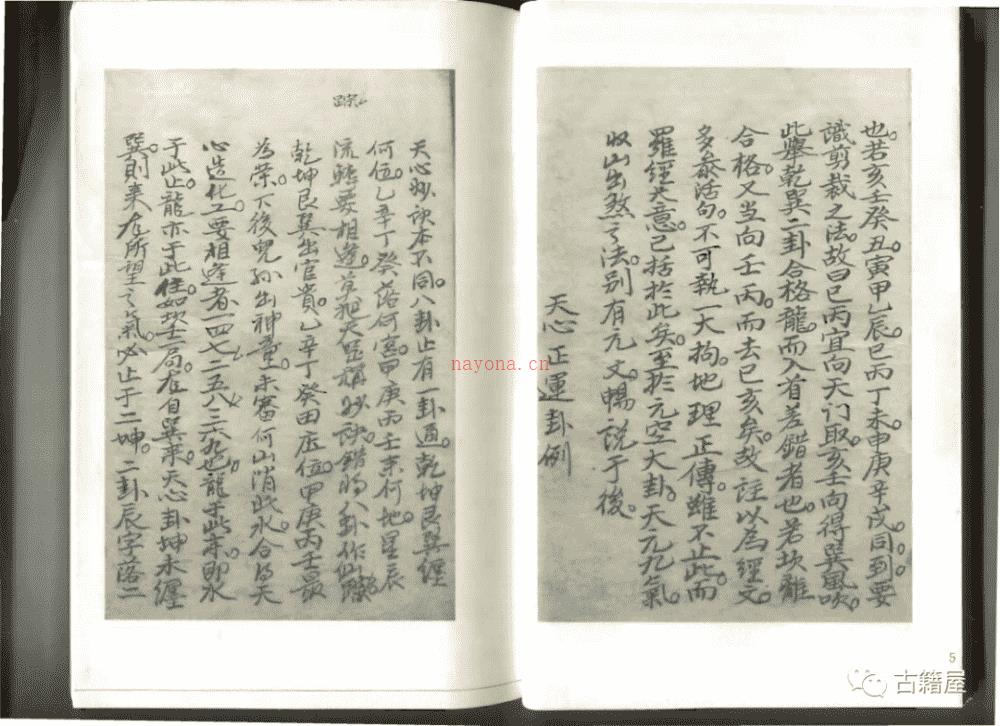 也。若亥壬癸丑寅甲乙辰巳丙丁未申庚辛戌。同到要
識剪裁之法。故曰巳丙宜向天门取。亥壬向得巽風吹。
此舉乾巽二卦合格龍。而入首差錯者也。若坎龍
合格。又当向壬丙。而去巳亥矣。故註以為經文。
多叅活句。不可執一大拘。地理正傳。雖不止此。而
羅經大意。已括於此矣。至於元空大卦。天元九氣。
收山出煞之法。別有元文。暢説于後。
天心正運卦例
天心妙訣本不同。八卦止有一卦通。乾坤艮巽纏
何位。乙辛丁癸落何宮。甲庚丙壬来何地。星辰
流轉要相逢。莫把天星稱妙訣。錯将八卦作仙踪
踪
乾坤艮巽出官貴。乙辛丁癸田庄位。甲庚丙壬最
為榮。下後兒孫出神童。未審何山消此水。合得天
心造化工。要相逢者。一四七二五八三六九也。龍于此来。即水
于此止。龍亦于此住。如坎壬一局。左自巽来。天心卦坤未纏
巽。則来左所望之氣。必止于二坤。二卦辰字落二
nayona.cn
5
古籍屋